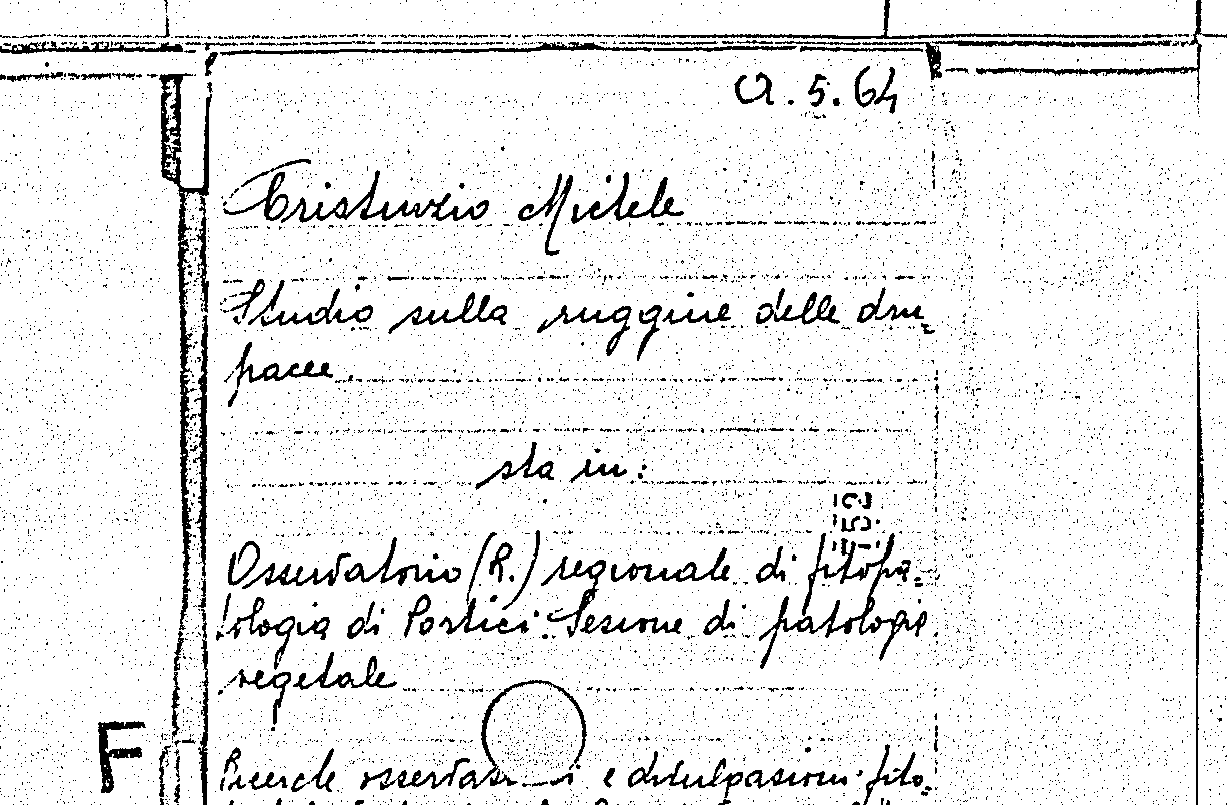 A.5.64
Cristinzio Michele
Studio sulla ruggine delle dru=
pacee.
sta in:
Osservatorio (R.) regionale di fitopa=
tologia di Portici. Sezione di patologia
vegetale
Ricerche osservazi i e divulgazioni fito=
F